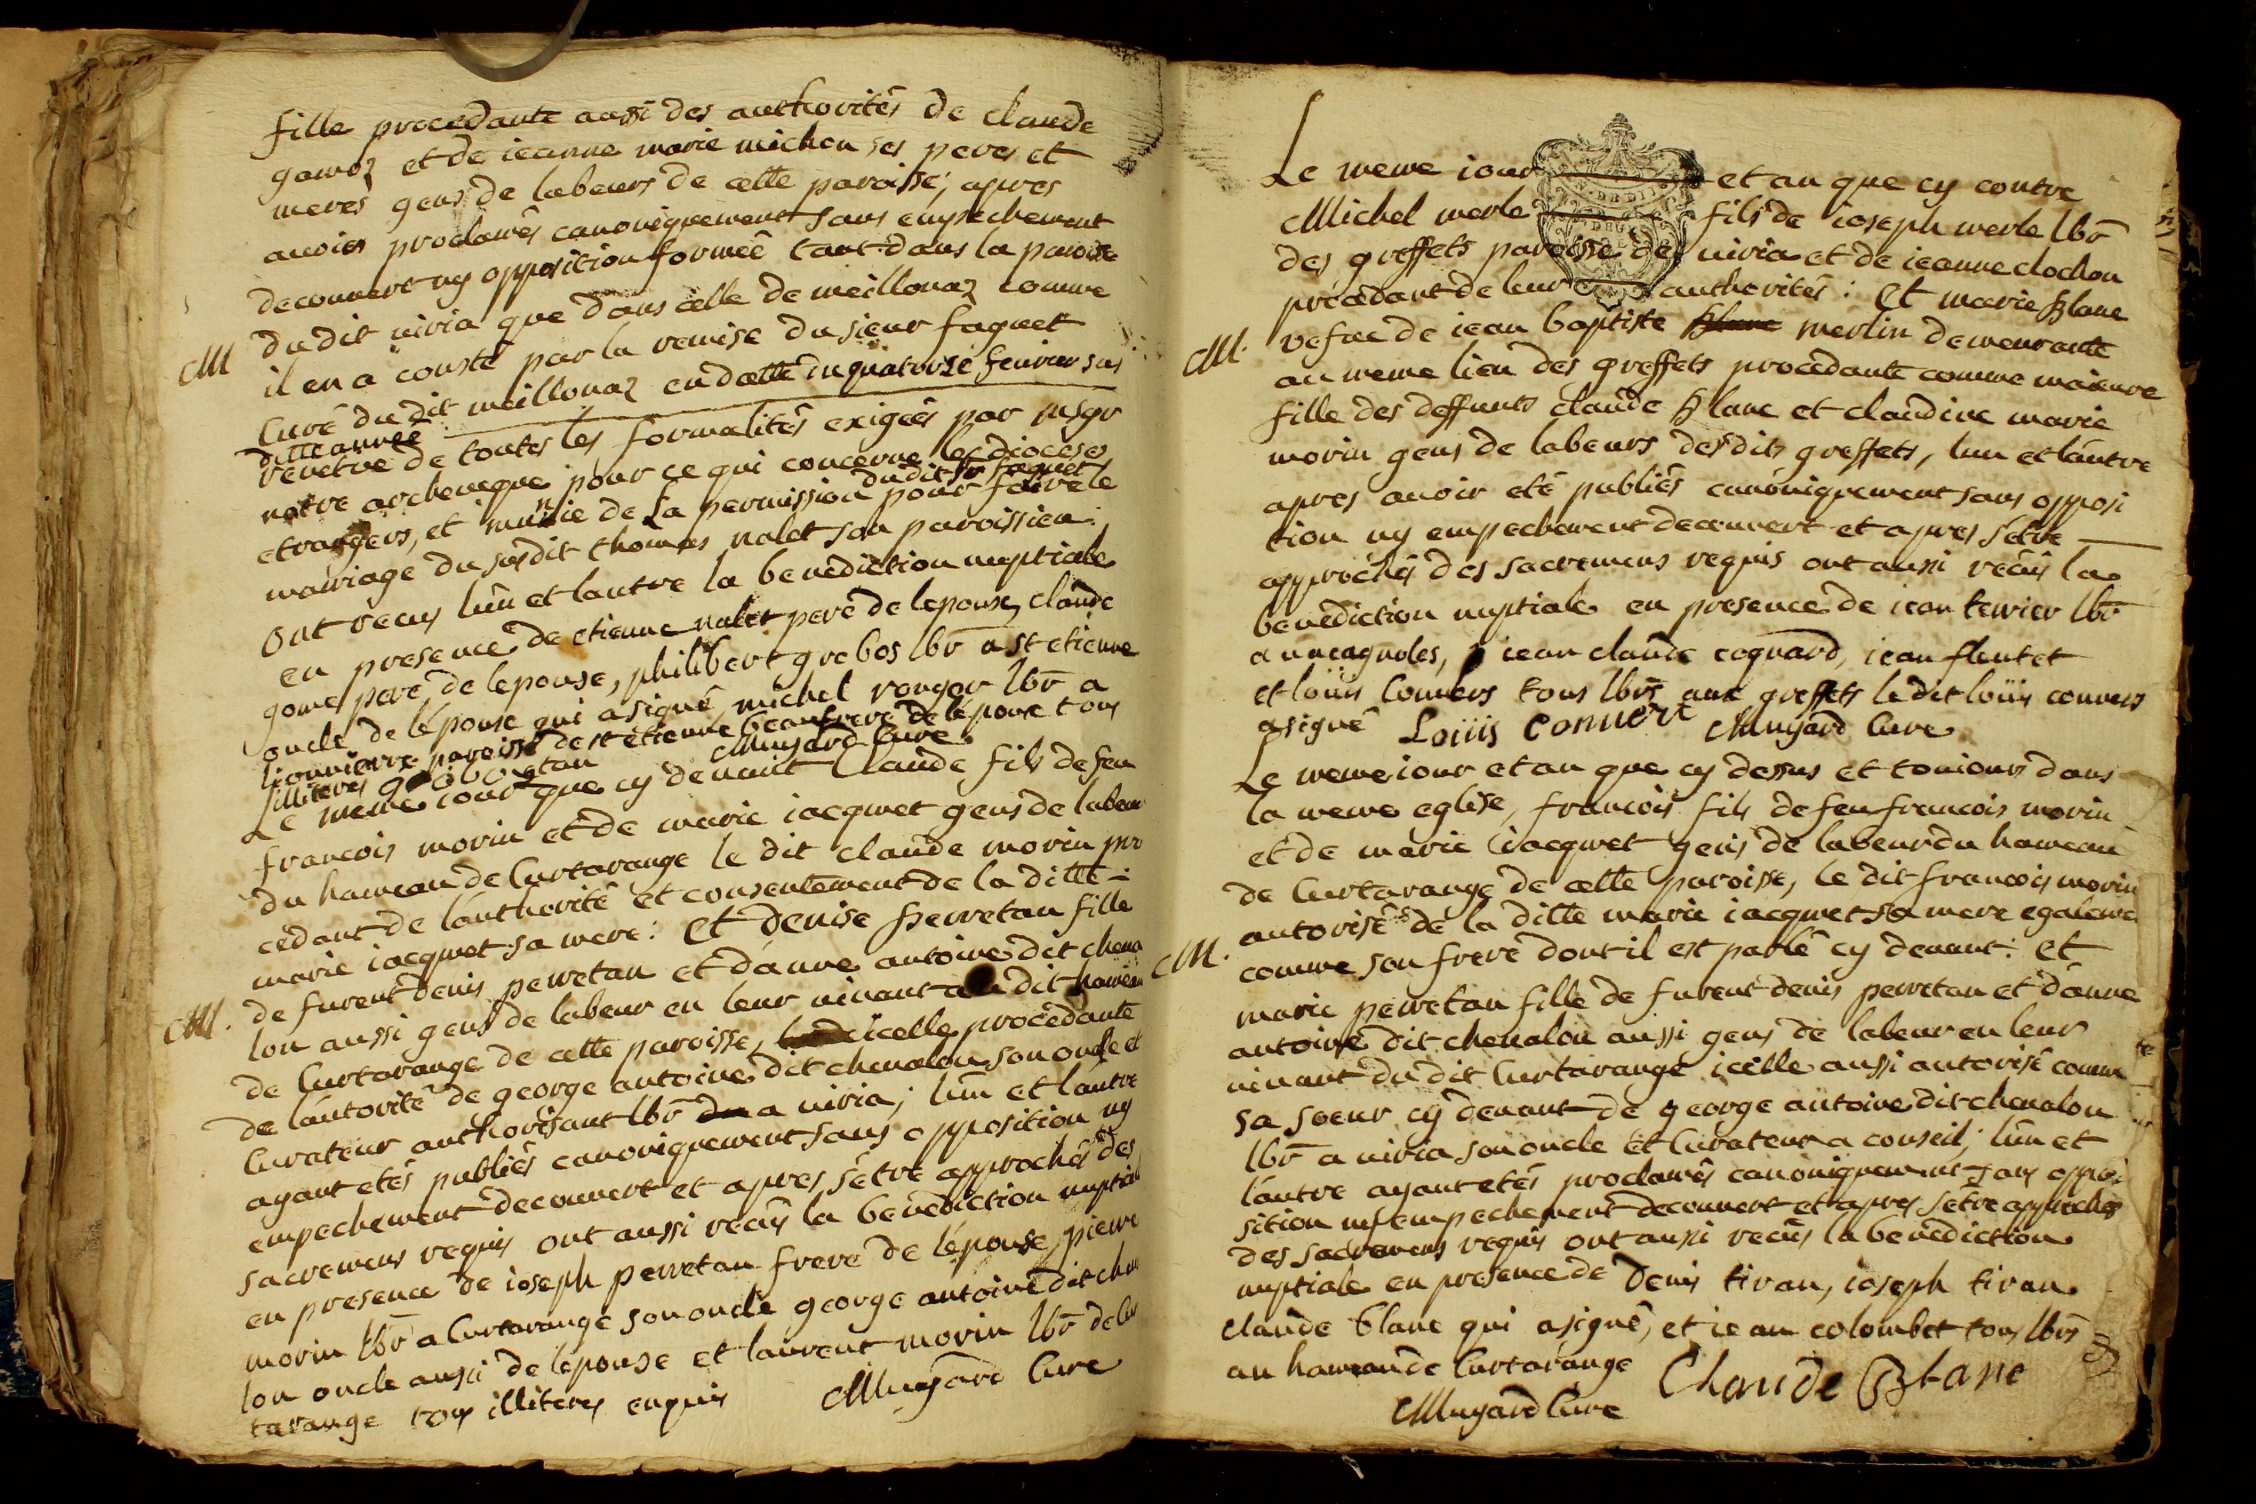 fille procedante aussi des authorités de claude
gamoz et de ieanne marie michon ses peres et
meres gens de labeurs de cette paroisse; apres
avoies proclamês canoniquement sans empechement
decouvert ny opposition formeê tant dans la paroisse
du dit viria que dans celle de meillonaz comme
il en a consté par la remise du sieur faguet
Curé du dit meillonaz en datte du quatorze fevrier sus
ditte anneé
revetue de toutes les formalités exigeês par msgr
notre archeveque pour ce qui concerne les dioceses
etrangers, et munie de la permission du dit sr faguet pour faire le
mariage du susdit thomas nalet son paroissien;
ont recus lûn et lautre la benediction nuptiale
en presence de etienne nalet pere de lepoux, claude
gome pere de lepouse, philibert grobos lbr a st etienne
oncle de lépouse qui a signé, michel rongor lbr a
lionniere paroisse de st etienne beaufrere de lépouse tous
illiteres Mugard Cure
Le meme iour et an que cy devant Claude fils de feu
francois morin et de marie iacquet gens de labeur
du hameau de Curtarange le dit claude morin pro
cedant de lauthorité et consentement de la ditte
marie iacquet sa mere: Et denise perretan fille
de furent denis perretan et dánne antoine dit cheva
lon aussi gens de labeur en leur vivant au dit hameau
de Curtarange de cette paroisse, icelle procedante
de lautorité de george antoine dit chevalon son oncle et
Curateur authorisant lbr a viria; lûn et lautre
ayant etés publiês canoniquement sans opposition ny
empechement decouvert et apres sêtre approchês des
sacremens requis ont aussi recûs la benediction nuptiale
en presence de ioseph perretan frere de lépouse, pierre
morin lbr a Curtarange son oncle george antoine dit cheva
lon oncle aussi de lepouse et laurent morin lbr de Cur
tarange tous illiteres enquis Mugard Cure
M
M.
Le meme iour et an que cy contre
Michel merle fils de ioseph merle lbr
des greffets paroisse de viria et de ieanne clochon
procedant de leur authorités: Et marie Blanc
vefue de iean baptiste merlin demeurante
au meme lieu des greffets procedante comme maieure
fille des deffunts claude Blanc et claudine marie
morin gens de labeurs desdits greffets, lun et láutre
apres avoir eté publiês canóniquement sans opposi
tion ny empechement decouvert et apres sétre
approchês des sacremens requis ont aussi recûs la
benediction nuptiale en presence de iean terrier lbr
a vacagnoles, iean claude coquard, iean flentet
et loüis Convers tous lbrs aux greffets le dit loüis convers
a signê Loüis Convert Mugard Cure
Le meme iour et an que cy dessus et toujours dans
la meme eglise, francois fils de feu francois morin
et de marie iacquet gens de labeur du hameau
de Curtarange de cette paroisse, le dit francois morin
autorisê de la ditte marie iacquet sa mere egaleme
comme son frere dont il est parlê cy devant: Et
marie perretan fille de furent denis perretan et dánne
antoine dit chevalon aussi gens de labeur en leur
vivant du dit Curtarange icelle aussi autorisê comme
sa soeur cy devant de george antoine dit chevalon
lbr a viria son oncle et Curateur a conseil; lûn et
láutre ayant etés proclamês canoniquement sans oppo
sition ny empechement decouvert et apres sétre approchês
des sacremens requis ont aussi recûs la benediction
nuptiale en presence de denis tiran, ioseph tiran
claude blanc qui a signê, et iean colombet tous lbrs
au hameau de Curtarange Claude Blanc
Mugard Cure
M.
M.